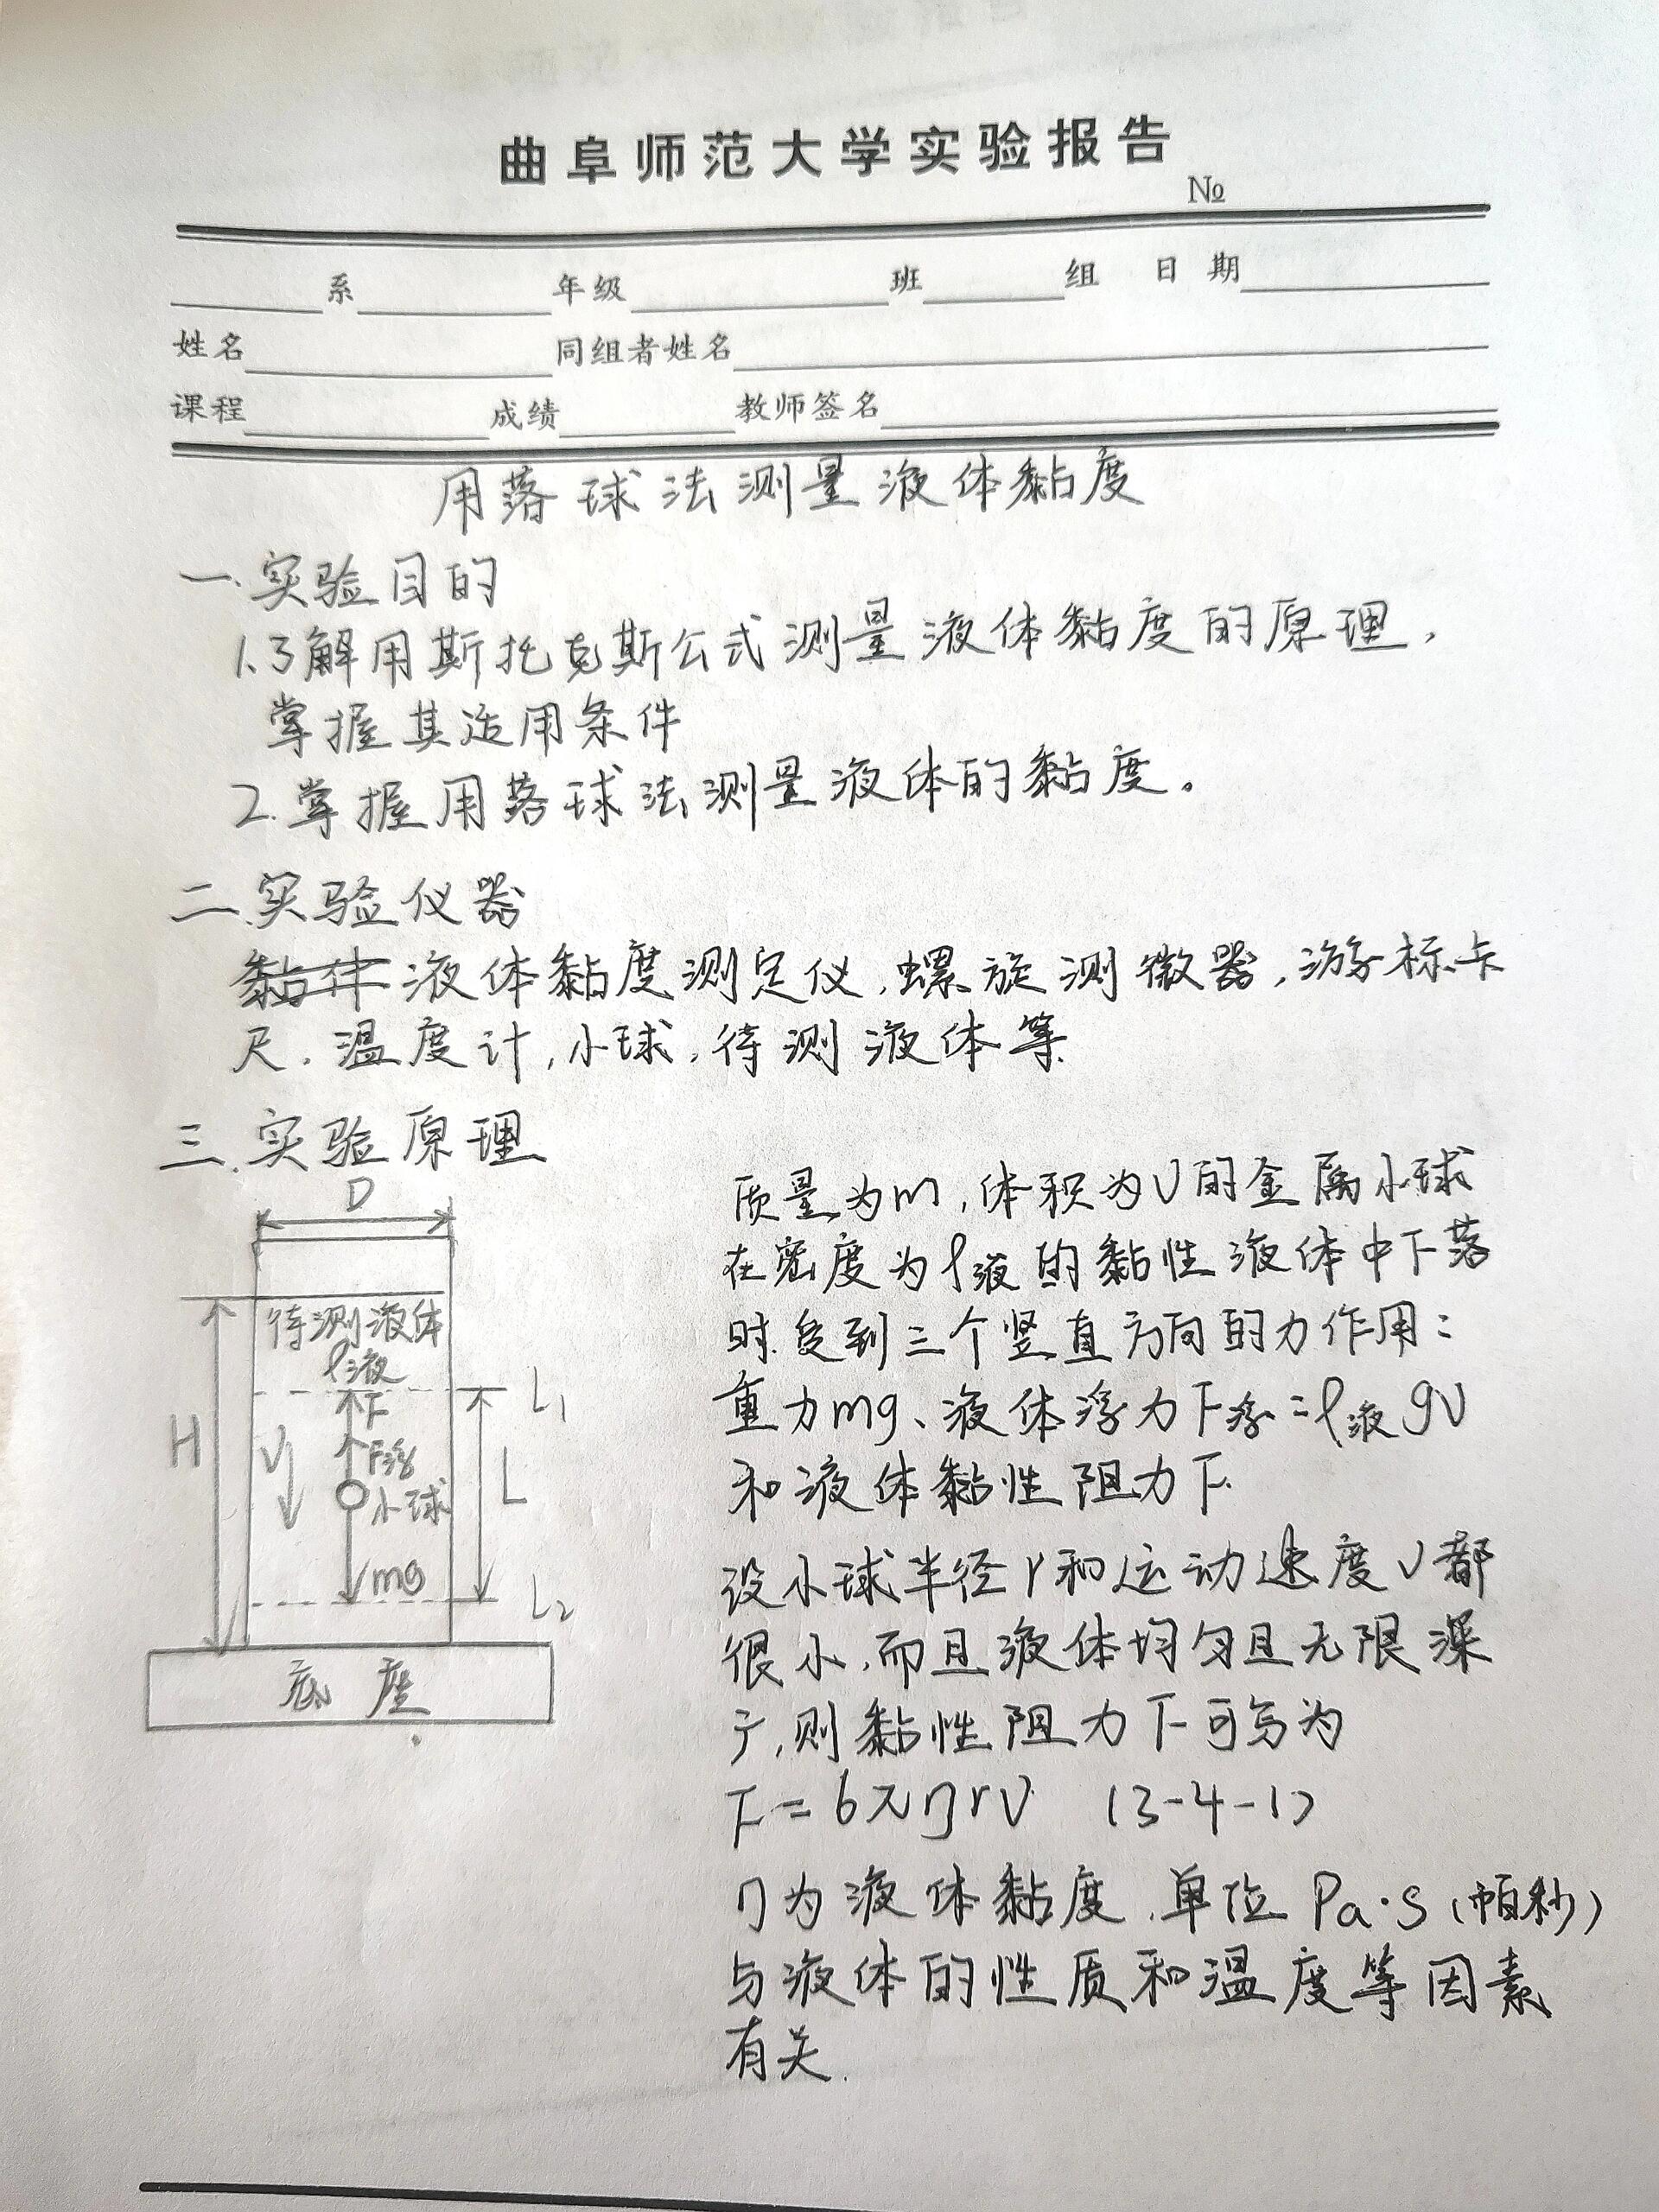 曲阜师范大学实验报告
№
系 年级 班 组 日期
姓名 同组者姓名
课程 成绩 教师签名
用落球法测量液体黏度
一.实验目的
1.了解用斯托克斯公式测量液体黏度的原理,
掌握其适用条件
2.掌握用落球法测量液体的黏度。
二.实验仪器
液体黏度测定仪,螺旋测微器,游标卡
尺.温度计,小球,待测液体等.
三.实验原理
D
待测液体
ρ液
F
F浮
小球
mg
H
V
L₁
L
L₂
底座
质量为m,体积为V的金属小球
在密度为ρ液的黏性液体中下落
时.受到三个竖直方向的力作用:
重力mg、液体浮力F浮=ρ液gV
和液体黏性阻力F.
设小球半径r和运动速度V都
很小,而且液体均匀且无限深
广,则黏性阻力F可写为
F=6πηrV (3-4-1)
η为液体黏度.单位Pa·s(帕秒)
与液体的性质和温度等因素
有关.